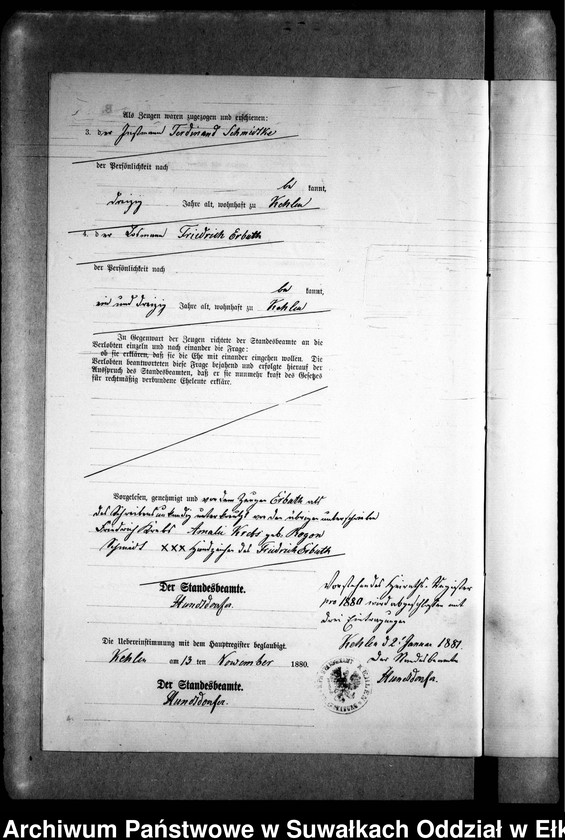 Als Zeugen waren zugezogen und erschienen:
3. der Ferdinand Schmidtke
der Persönlichkeit nach
be kannt,
dreizig Jahre alt, wohnhaft zu Kehlen
4. der Losmann Friedrich Erbuth
der Persönlichkeit nach
be kannt,
ein und dreizig Jahre alt, wohnhaft zu Kehlen
In Gegenwart der Zeugen richtete der Standesbeamte an die
Verlobten einzeln und nach einander die Frage:
ob sie erklären, daß sie die Ehe mit einander eingehen wollen. Die
Verlobten beantworteten diese Frage bejahend und erfolgte hierauf der
Ausspruch des Standesbeamten, daß er sie nunmehr kraft des Gesetzes
für rechtmäßig verbundene Eheleute erkläre.
Vorgelesen, genehmigt und von dem Zeugen Erbuth als
des Schreibens unkundig unterkreuzt von den übrigen unterschrieben
Friedrich Krebs Amalie Krebs geb. Rogon
Schmidt XXX Handzeichen des Friedrich Erbuth
Der Standesbeamte.
Hundsdörfer.
Vorstehendes Heiraths-Register
pro 1880 wird abgeschlossen mit
drei Eintragungen
Kehlen d 2t Januar 1881.
Der Standesbeamte
Hundsdörfer.
Die Uebereinstimmung mit dem Hauptregister beglaubigt.
Kehlen am 13 ten November 1880.
Der Standesbeamte.
Hundsdörfer.
Archiwum Państwowe w Suwałkach Oddział w Ełk